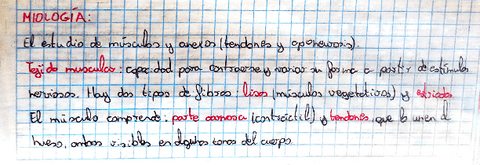 MIOLOGÍA:
El estudio de músculos y anexos (tendones y aponeurosis).
Tejido muscular: capacidad para contraerse y variar su forma a partir de estímulos
nerviosos. Hay dos tipos de fibras: lisas (músculos vegetativos) y estriadas
El músculo comprende: parte carnosa (contráctil) y tendones, que lo unen al
hueso, ambos visibles en algunas zonas del cuerpo.